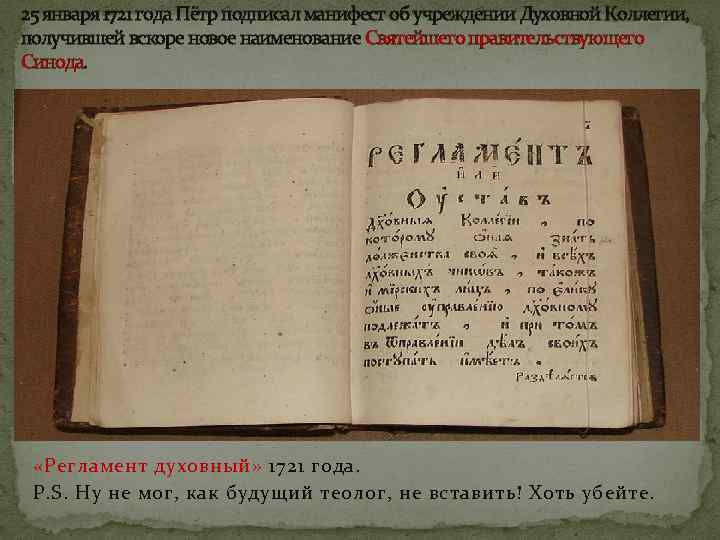 25 января 1721 года Пётр подписал манифест об учреждении Духовной Коллегии,
получившей вскоре новое наименование Святейшего правительствующего
Синода.
РЕГЛАМЕ́НТЪ
И҆ЛИ
Оу҆ста́въ
Дх҃о́вныѧ Коллегїи , по
которомꙋ ѻ҆наѧ зна́ть
до́лженства своѧ̀ , и҆ всѣ́хъ
дх҃о́вныхъ чинѡ́въ , та́кожъ
и҆ мїрски́хъ ли́цъ , по є҆ли́кꙋ
ѻ҆ные ᲂу҆правле́нїю дх҃о́вномꙋ
подлежа́тъ , и҆ при то́мъ
въ ѿправле́нїи дѣ́лъ свои́хъ
постꙋпа́ть и҆мѣ́етъ .
Раздѣлѧ́етсѧ
«Регламент духовный» 1721 года.
P.S. Ну не мог, как будущий теолог, не вставить! Хоть убейте.